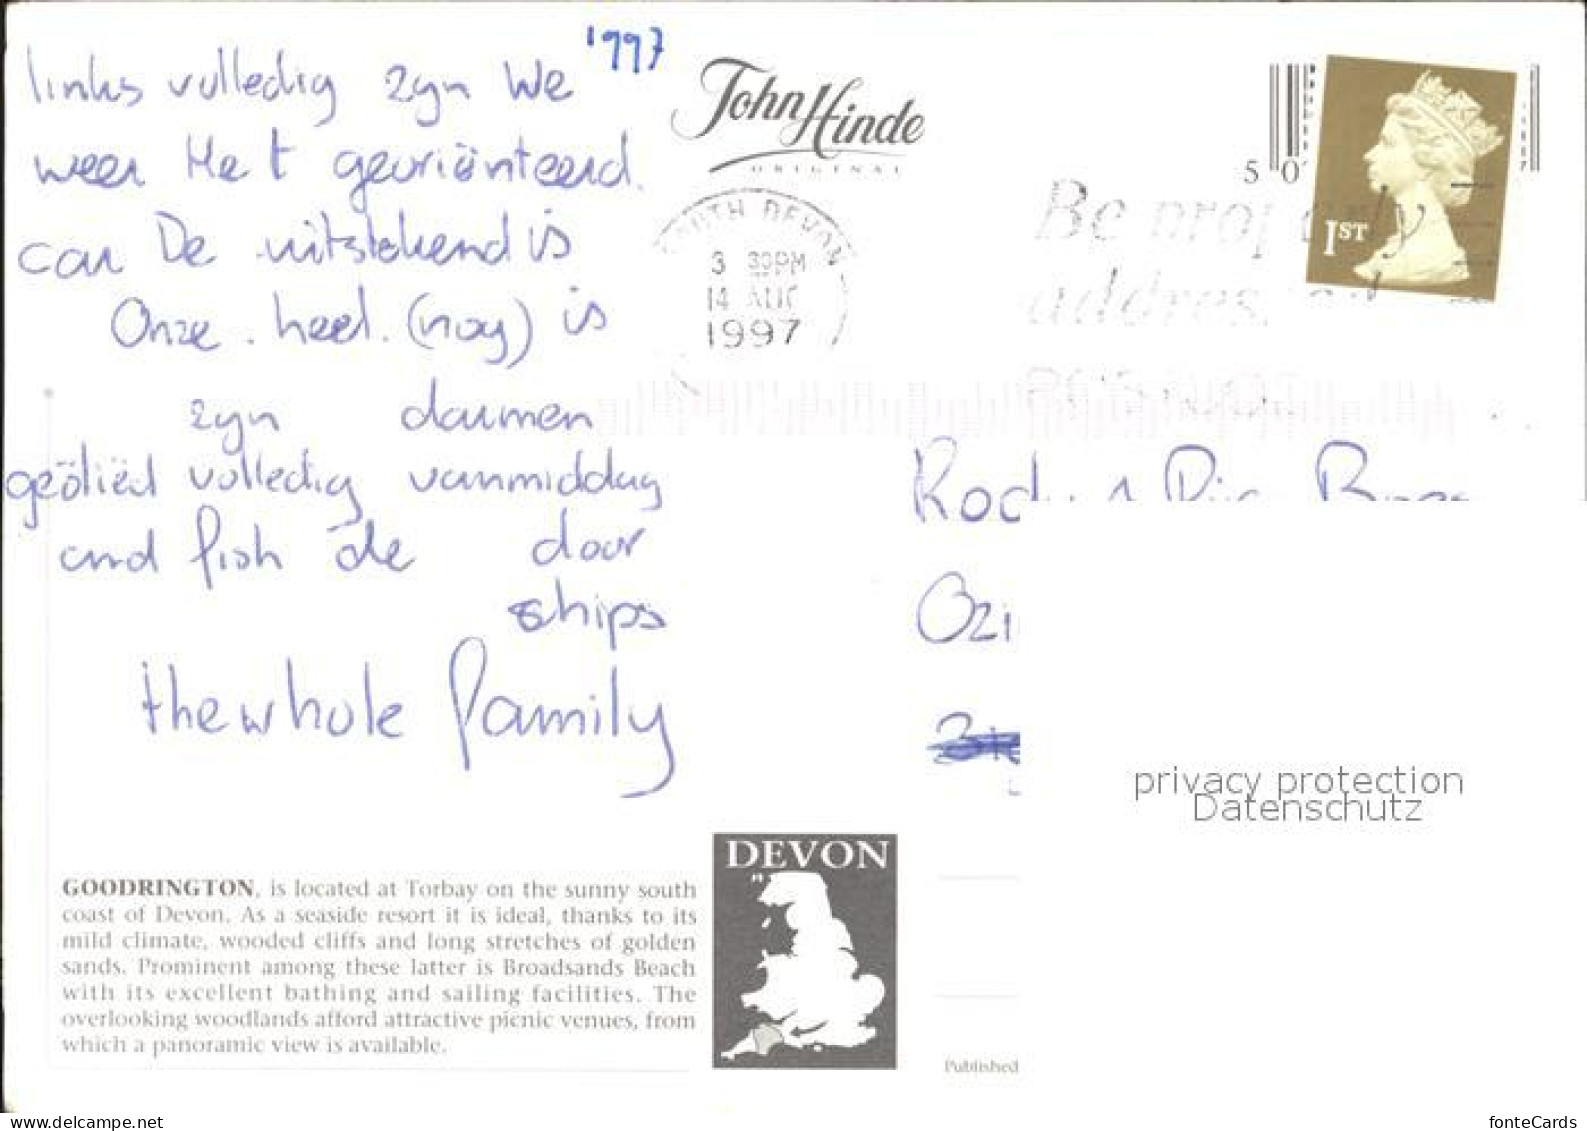 1997
links volledig zyn We
weer Het georiënteerd.
car De uitstekend is
Onze heel (nog) is
zyn darmen
geölied volledig vanmiddag
and fish de door
ships
the whole family
John Hinde
ORIGINAL
SOUTH DEVON
3 30PM
14 AUG
1997
Be properly
address
1ST
GOODRINGTON, is located at Torbay on the sunny south
coast of Devon. As a seaside resort it is ideal, thanks to its
mild climate, wooded cliffs and long stretches of golden
sands. Prominent among these latter is Broadsands Beach
with its excellent bathing and sailing facilities. The
overlooking woodlands afford attractive picnic venues, from
which a panoramic view is available.
DEVON
Published
privacy protection
Datenschutz
delcampe.net
fonteCards